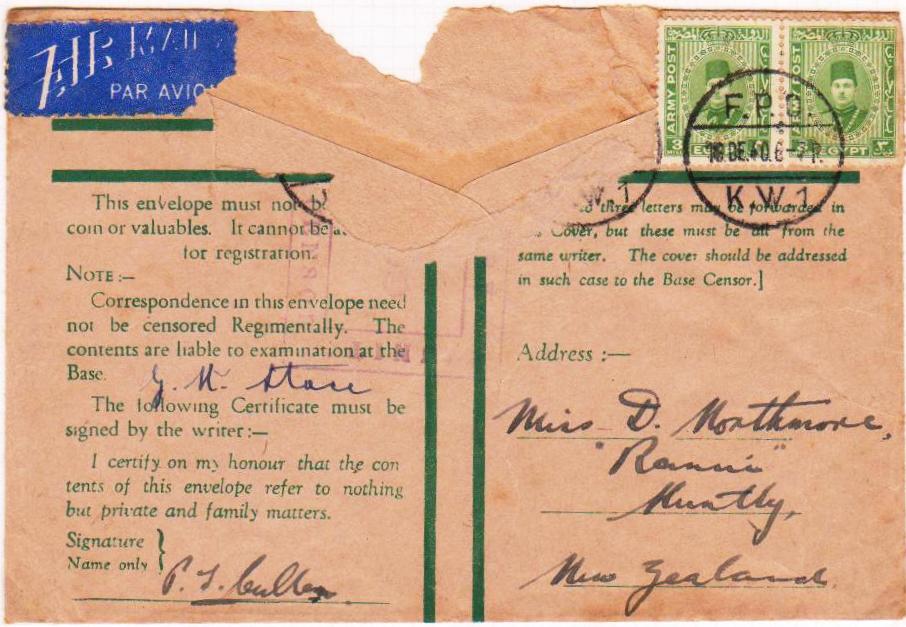 AIR MAIL
PAR AVION
ARMY POST
EGYPT
ARMY POST
EGYPT
F.P.O.
18 DE.40.6-7 P.
K.W.1
W.1
This envelope must not b
coin or valuables. It cannot be a
for registration.
NOTE:—
Correspondence in this envelope need
not be censored Regimentally. The
contents are liable to examination at the
Base.
The following Certificate must be
signed by the writer:—
I certify on my honour that the con
tents of this envelope refer to nothing
but private and family matters.
Signature
Name only
P. L. Cullen
to three letters may be forwarded in
Cover, but these must be all from the
same writer. The cover should be addressed
in such case to the Base Censor.]
Address :—
Miss D. Northmore,
Huntly,
New Zealand.